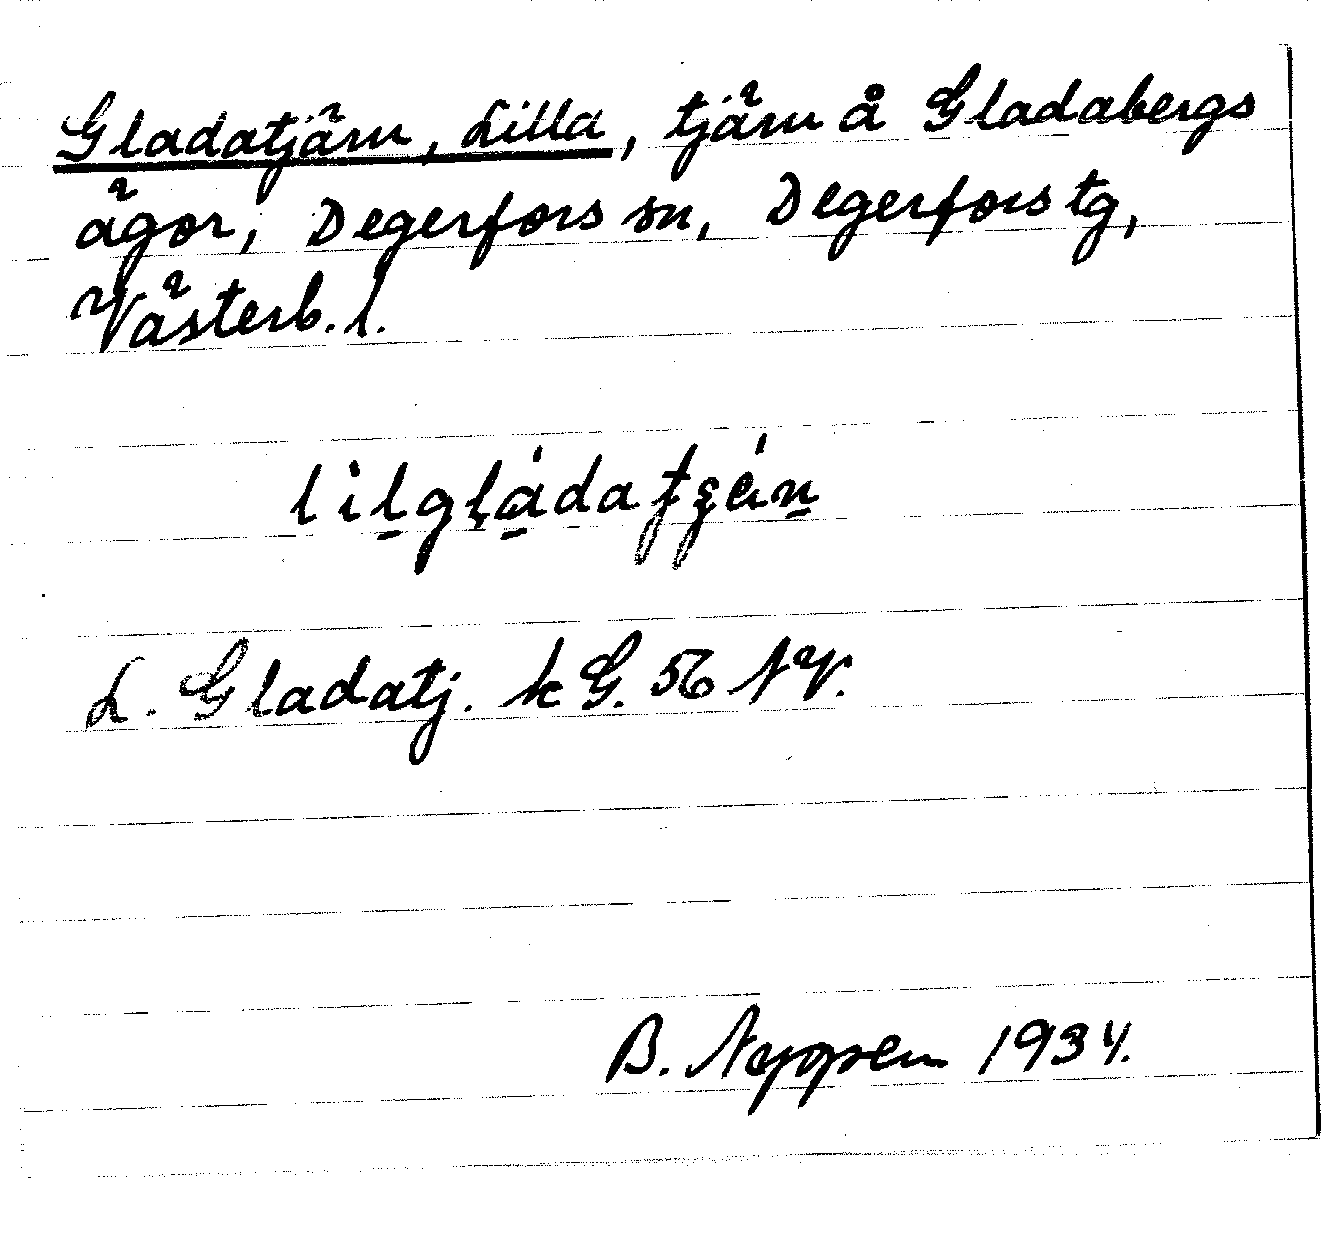 Gladatjärn, Lilla, tjärn å Gladabergs
ägor, Degerfors sn, Degerfors tg,
Västerb. l.
L. Gladatj. kG. 56 NV.
B. Neppen 1934.